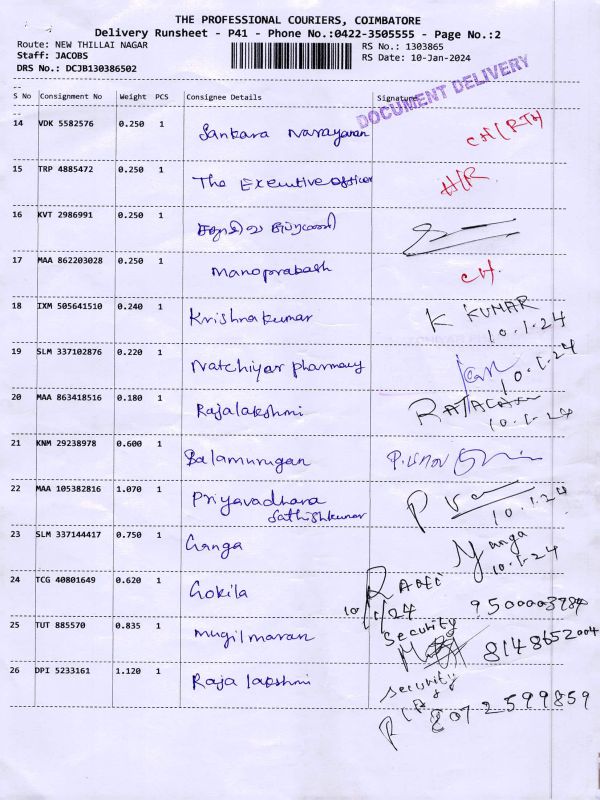 THE PROFESSIONAL COURIERS, COIMBATORE
Delivery Runsheet - P41 - Phone No.:0422-3505555 - Page No.:2
Route: NEW THILLAI NAGAR RS No.: 1303865
Staff: JACOBS RS Date: 10-Jan-2024
DRS No.: DCJB130386502
DOCUMENT DELIVERY
S No Consignment No Weight PCS Consignee Details Signature
14 VDK 5582576 0.250 1 Sankara Narayanan
15 TRP 4885472 0.250 1 The Executive Officer H/R.
16 KVT 2986991 0.250 1
17 MAA 862203028 0.250 1 Manoprabash CH.
18 IXM 505641510 0.240 1 Krishnakumar K KUMAR
10.1.24
19 SLM 337102876 0.220 1 Natchiyar pharmacy
10.1.24
20 MAA 863418516 0.180 1 Rajalakshmi
10.1.24
21 KNM 29238978 0.600 1 Balamurugan
22 MAA 105382816 1.070 1 Priyavadhana
Sathishkumar
10.1.24
23 SLM 337144417 0.750 1 Ganga
10.1.24
24 TCG 40801649 0.620 1 Gokila
10/1/24
Security
25 TUT 885570 0.835 1 Mugilmaran 8148652004
Security
26 DPI 5233161 1.120 1 Raja lakshmi
8072599859